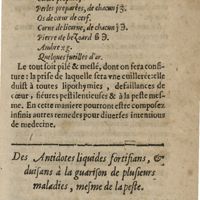 Perles preparées, de chacun ʒ.
Os de cœur de cerf.
Corne de licorne, de chacun ʒ.
Pierre de beZoard
Ambre xg.
Quelques fueilles d'or.
Le tout soit pilé & meslé, dont on sera confi-
ture : la prise de laquelle sera vne cuillerée: elle
duist à toutes lipothymies, defaillances de
cœur, fieures pestilentieuses & à la peste mes-
me. En ceste maniere pourront estre composez
infinis autres remedes pour diuerses intentions
de medecine.
Des Antidotes liquides fortifians, &
duisans à la guarison de plusieurs
maladies, mesme de la peste.